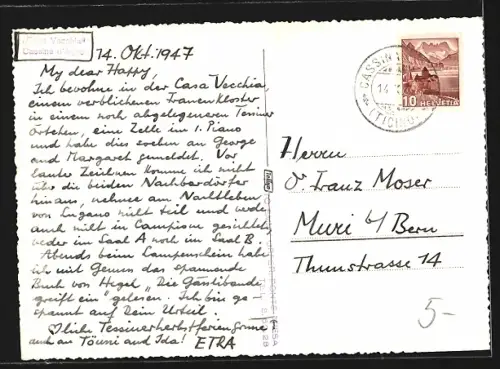 Casa Vecchia
Cassina d'Agno
14. Okt. 1947
My dear Happy,
Ich bewohne in der Casa Vecchia,
einem verblichenen Frauenkloster
in einem noch abgelegeneren Tessiner
Örtchen, eine Zelle im 1. Piano
und habe dies soeben an George
and Margaret gemeldet. Vor
lauter Zeichnen komme ich nicht
über die beiden Nachbardörfer
hinaus, nehme am Nachtleben
von Lugano nicht teil und werde
auch nicht in Campione gesichtet,
weder im Saal A noch im Saal B.
Abends beim Lampenschein habe
ich mit Genuss das spannende
Buch von Hegel "Die Gästibande
greift ein" gelesen. Ich bin ge-
spannt auf Dein Urteil.
Tessinerherbstferien
auch an Ida! ETRA
CASSINA
14.
(TICINO)
10 HELVETIA
Herrn
Franz Moser
Muri b/Bern
Thunstrasse 14
5-